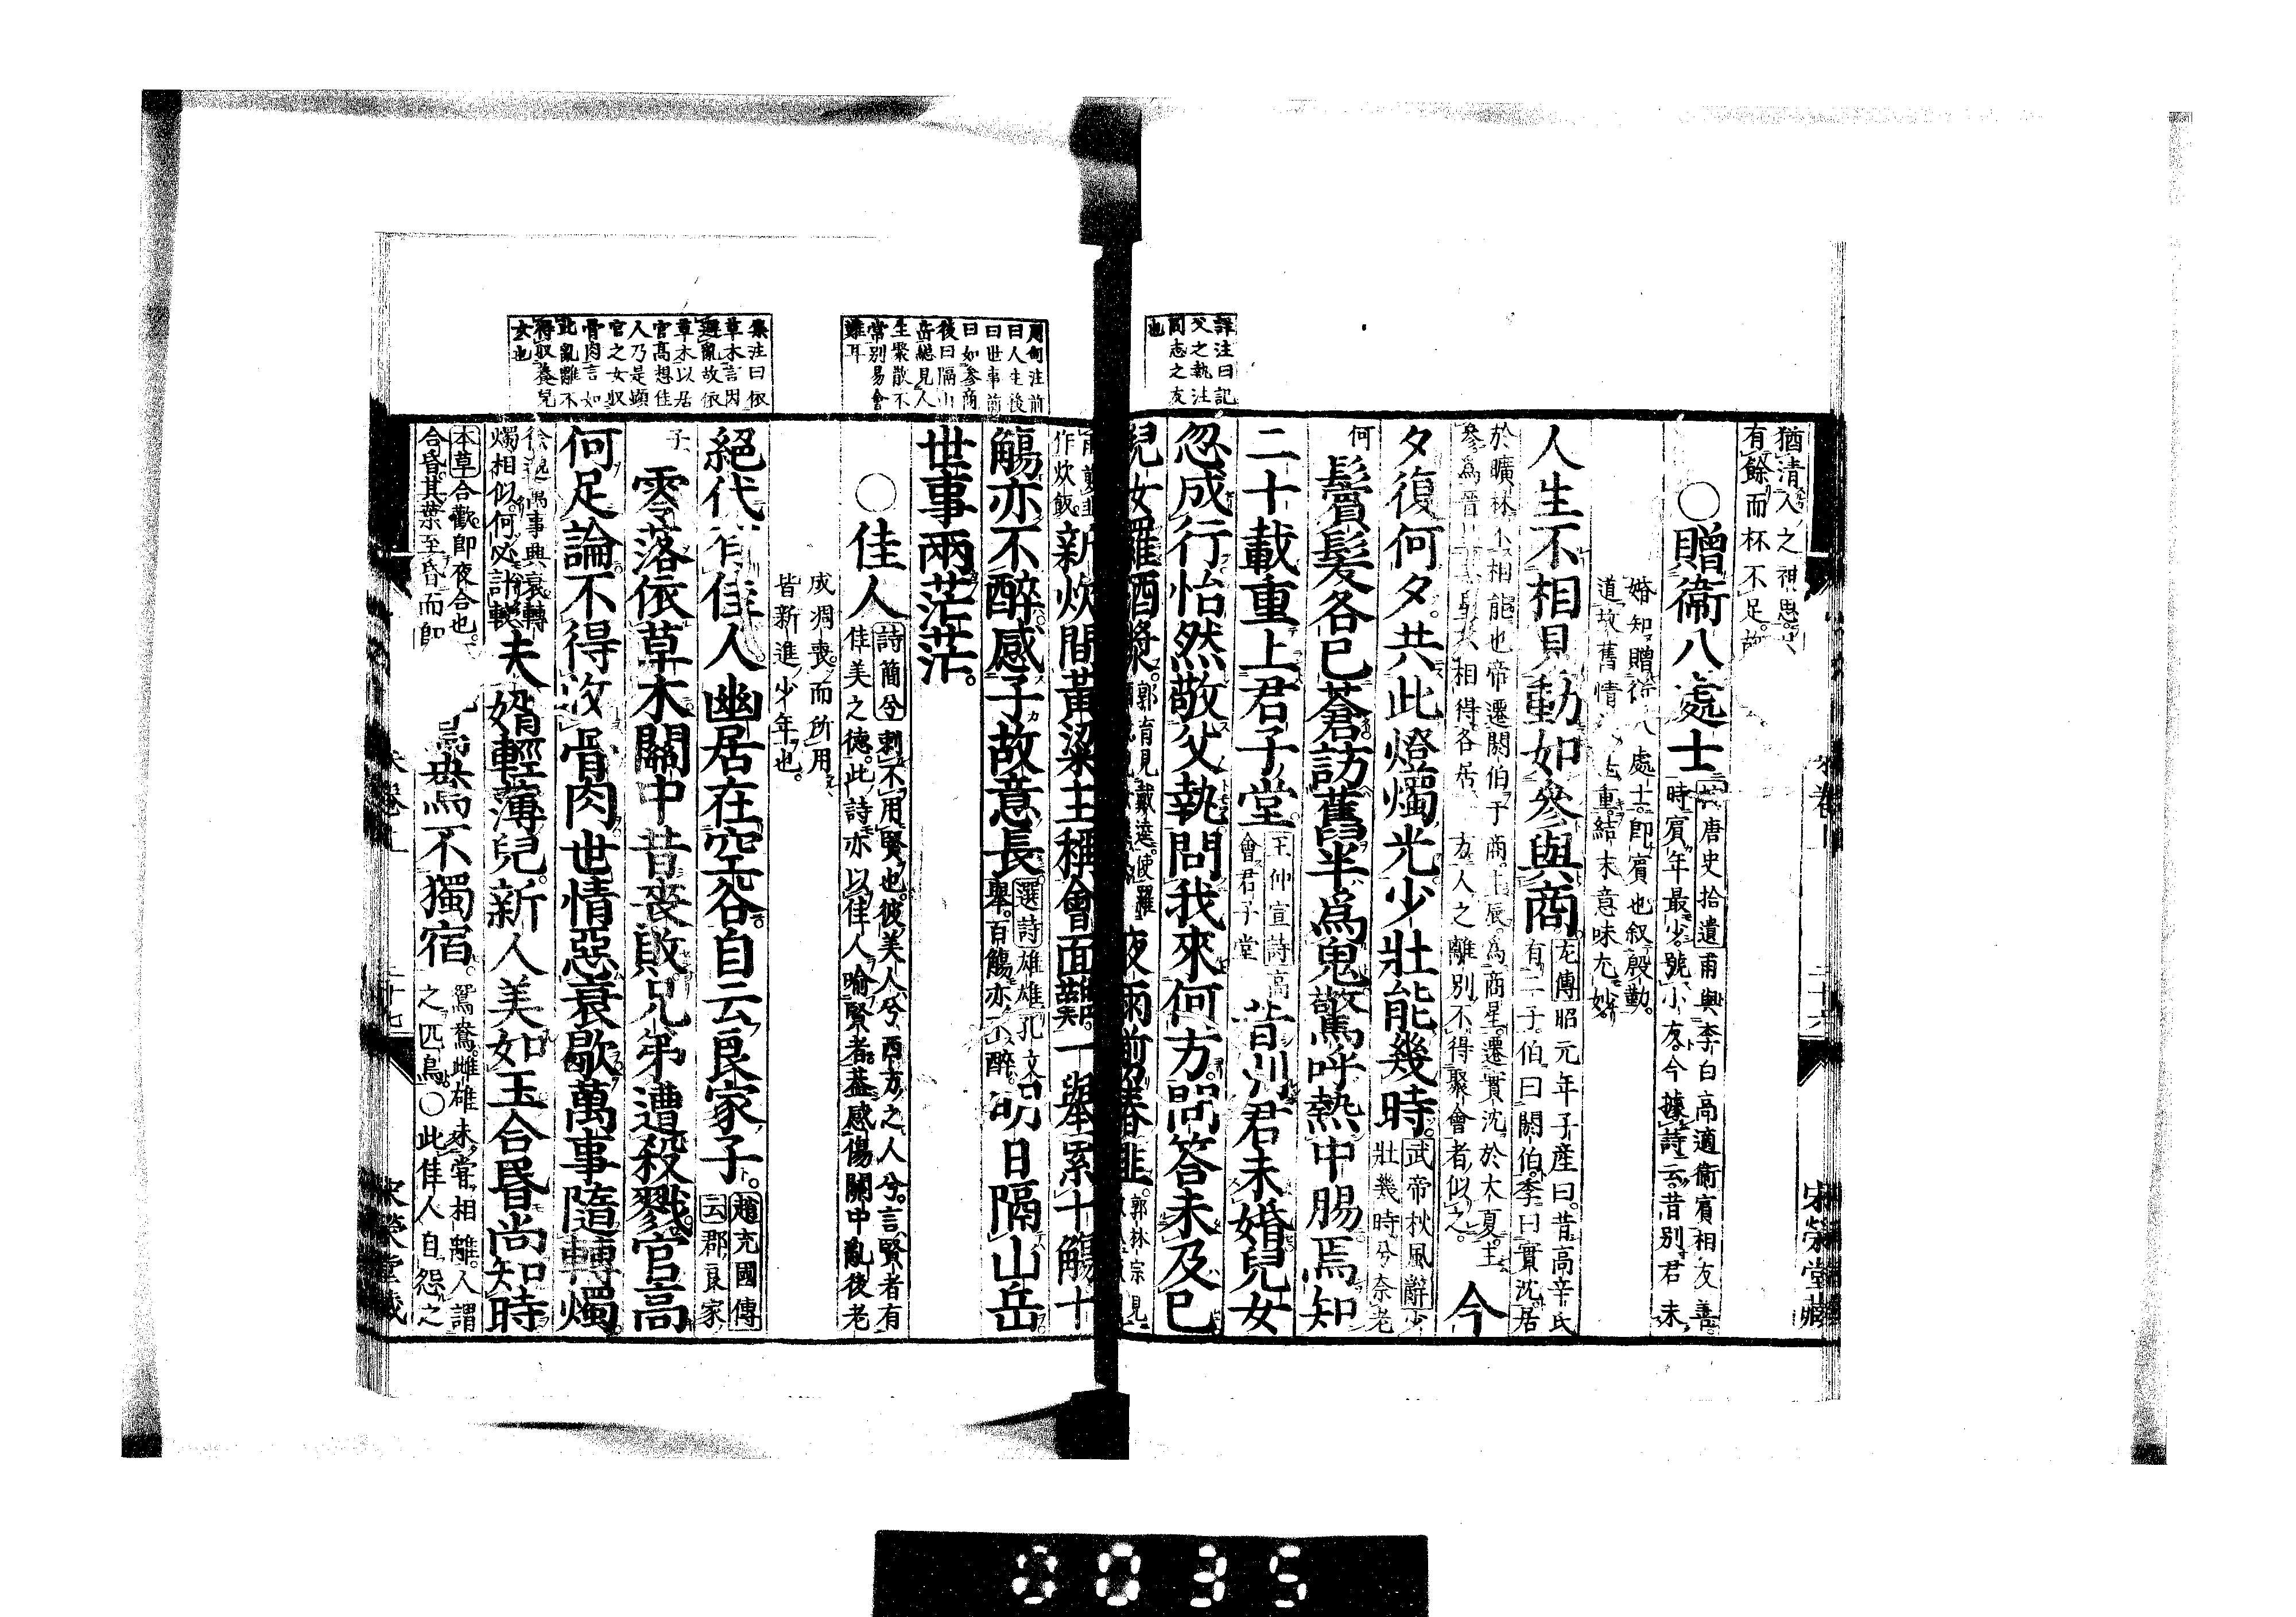 詳注曰記
父之執注
同志之友
也
猶清人之神思
有餘而杯不足
○贈衞八處士
唐史拾遺甫與李白高適衞賓相友善
時賓年最少號小友今據詩云昔別君未
婚知贈衞八處士即賓也叙殷勤
道故舊情重結末意味尢妙
人生不相見動如參與商
左傳昭元年子產曰昔高辛氏
有二子伯曰閼伯季曰實沈居
於曠林不相能也帝遷閼伯于商丘主辰爲商星遷實沈於大夏主
參爲晉星相得各居方人之離別不得聚會者似之
今
夕復何夕共此燈燭光少壯能幾時
武帝秋風辭少
壯幾時兮奈老
何
鬢髮各已蒼訪舊半爲鬼驚呼熱中腸焉知
二十載重上君子堂
王仲宣詩高
會君子堂
昔別君未婚兒女
忽成行怡然敬父執問我來何方問答未及已
兒女羅酒漿
郭育見戴逵使羅
夜雨剪春韭
郭林宗見
作炊飯
新炊間黃粱主稱會面難一擧累十觴十
觴亦不醉感子故意長
選詩雄雄孔文
擧百觴亦不醉
明日隔山岳
世事兩茫茫
周甸注前
曰人生後
曰世事前
曰如參商
後曰隔山
岳總見人
生聚散不
常別易會
難耳
○佳人
詩簡兮刺不用賢也彼美人兮西方之人兮言賢者有
佳美之德此詩亦以佳人喻賢者蓋感傷關中亂後老
成凋喪而所用
皆新進少年也
絕代有佳人幽居在空谷自云良家子
趙充國傳
云郡良家
子
零落依草木關中昔喪敗兄弟遭殺戮官高
何足論不得收骨肉世情惡衰歇萬事隨轉燭
萬事與衰轉
燭相似何必計較
夫婿輕薄兒新人美如玉合昏尚知時
本草合歡即夜合也
合昏其葉至昏而卽
鴛鴦不獨宿
鴛鴦雌雄未嘗相離人謂
之匹鳥○此佳人自怨之
集注曰依
草木言因
避亂故依
草木以居
官高想佳
人乃是顯
官之女収
骨肉言如
此亂離不
得収養兒
女也